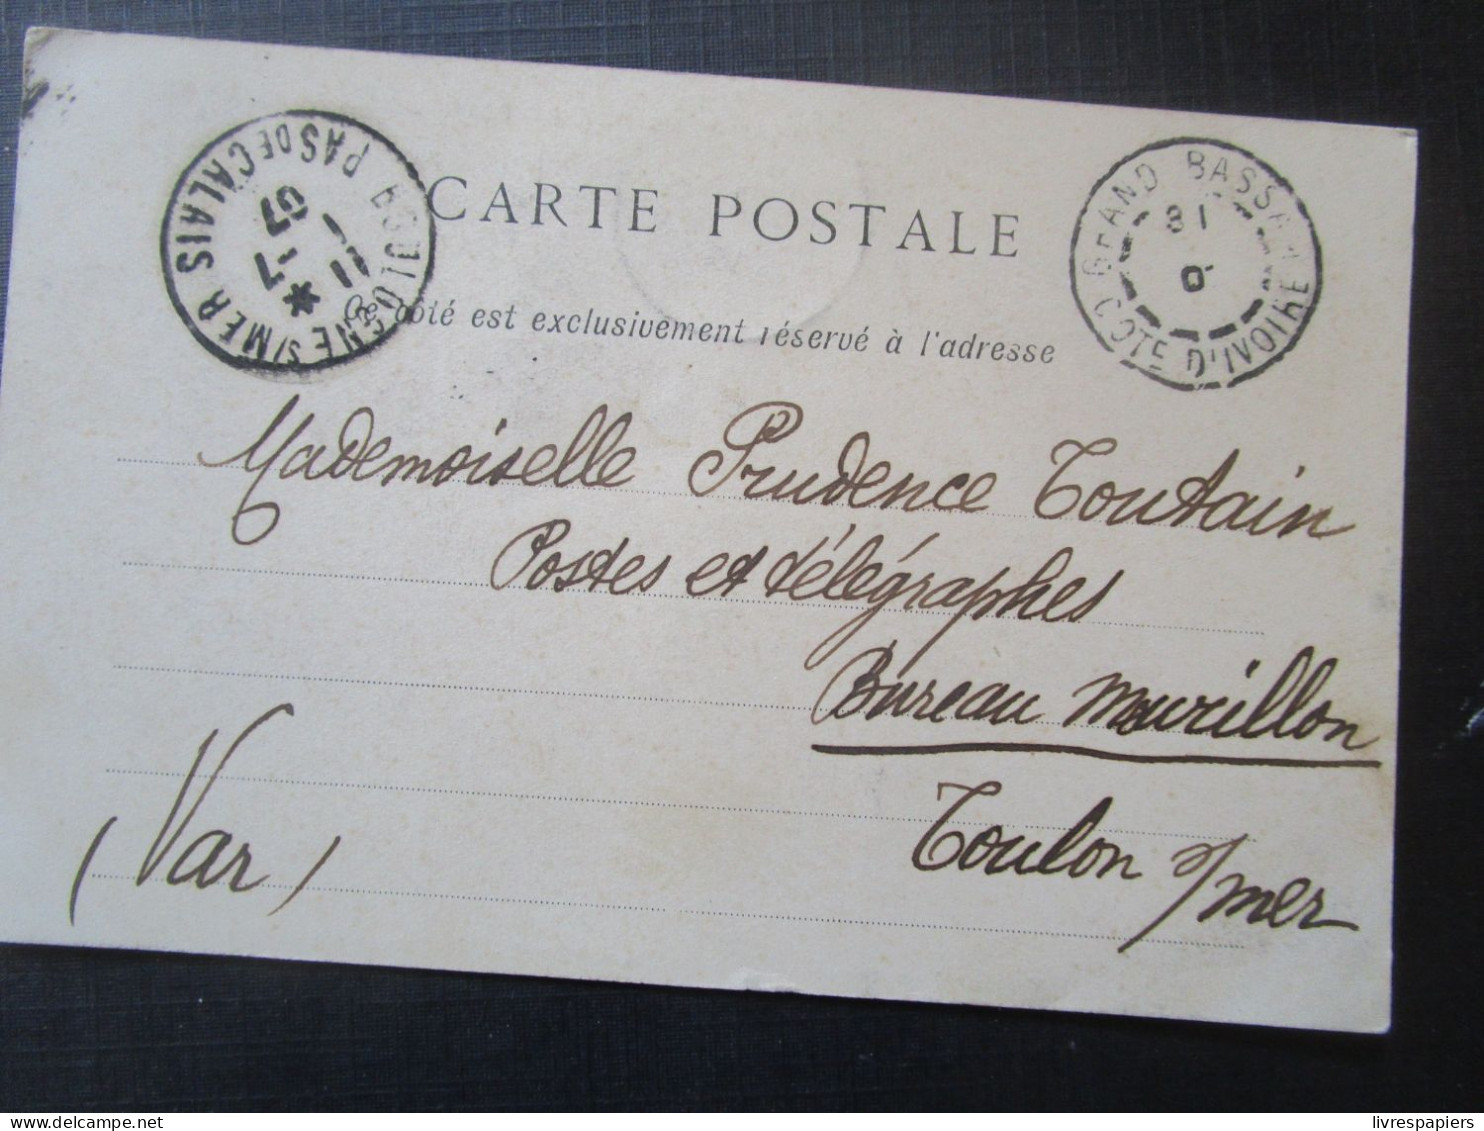 CARTE POSTALE
Ce côté est exclusivement réservé à l'adresse
BOULOGNE S/MER PAS DE CALAIS
11 -7 07
GRAND BASSAM
31
COTE D'IVOIRE
Mademoiselle Prudence Toutain
Postes et télégraphes
Bureau Mourillon
Toulon s/mer
(Var)
livrespapiers